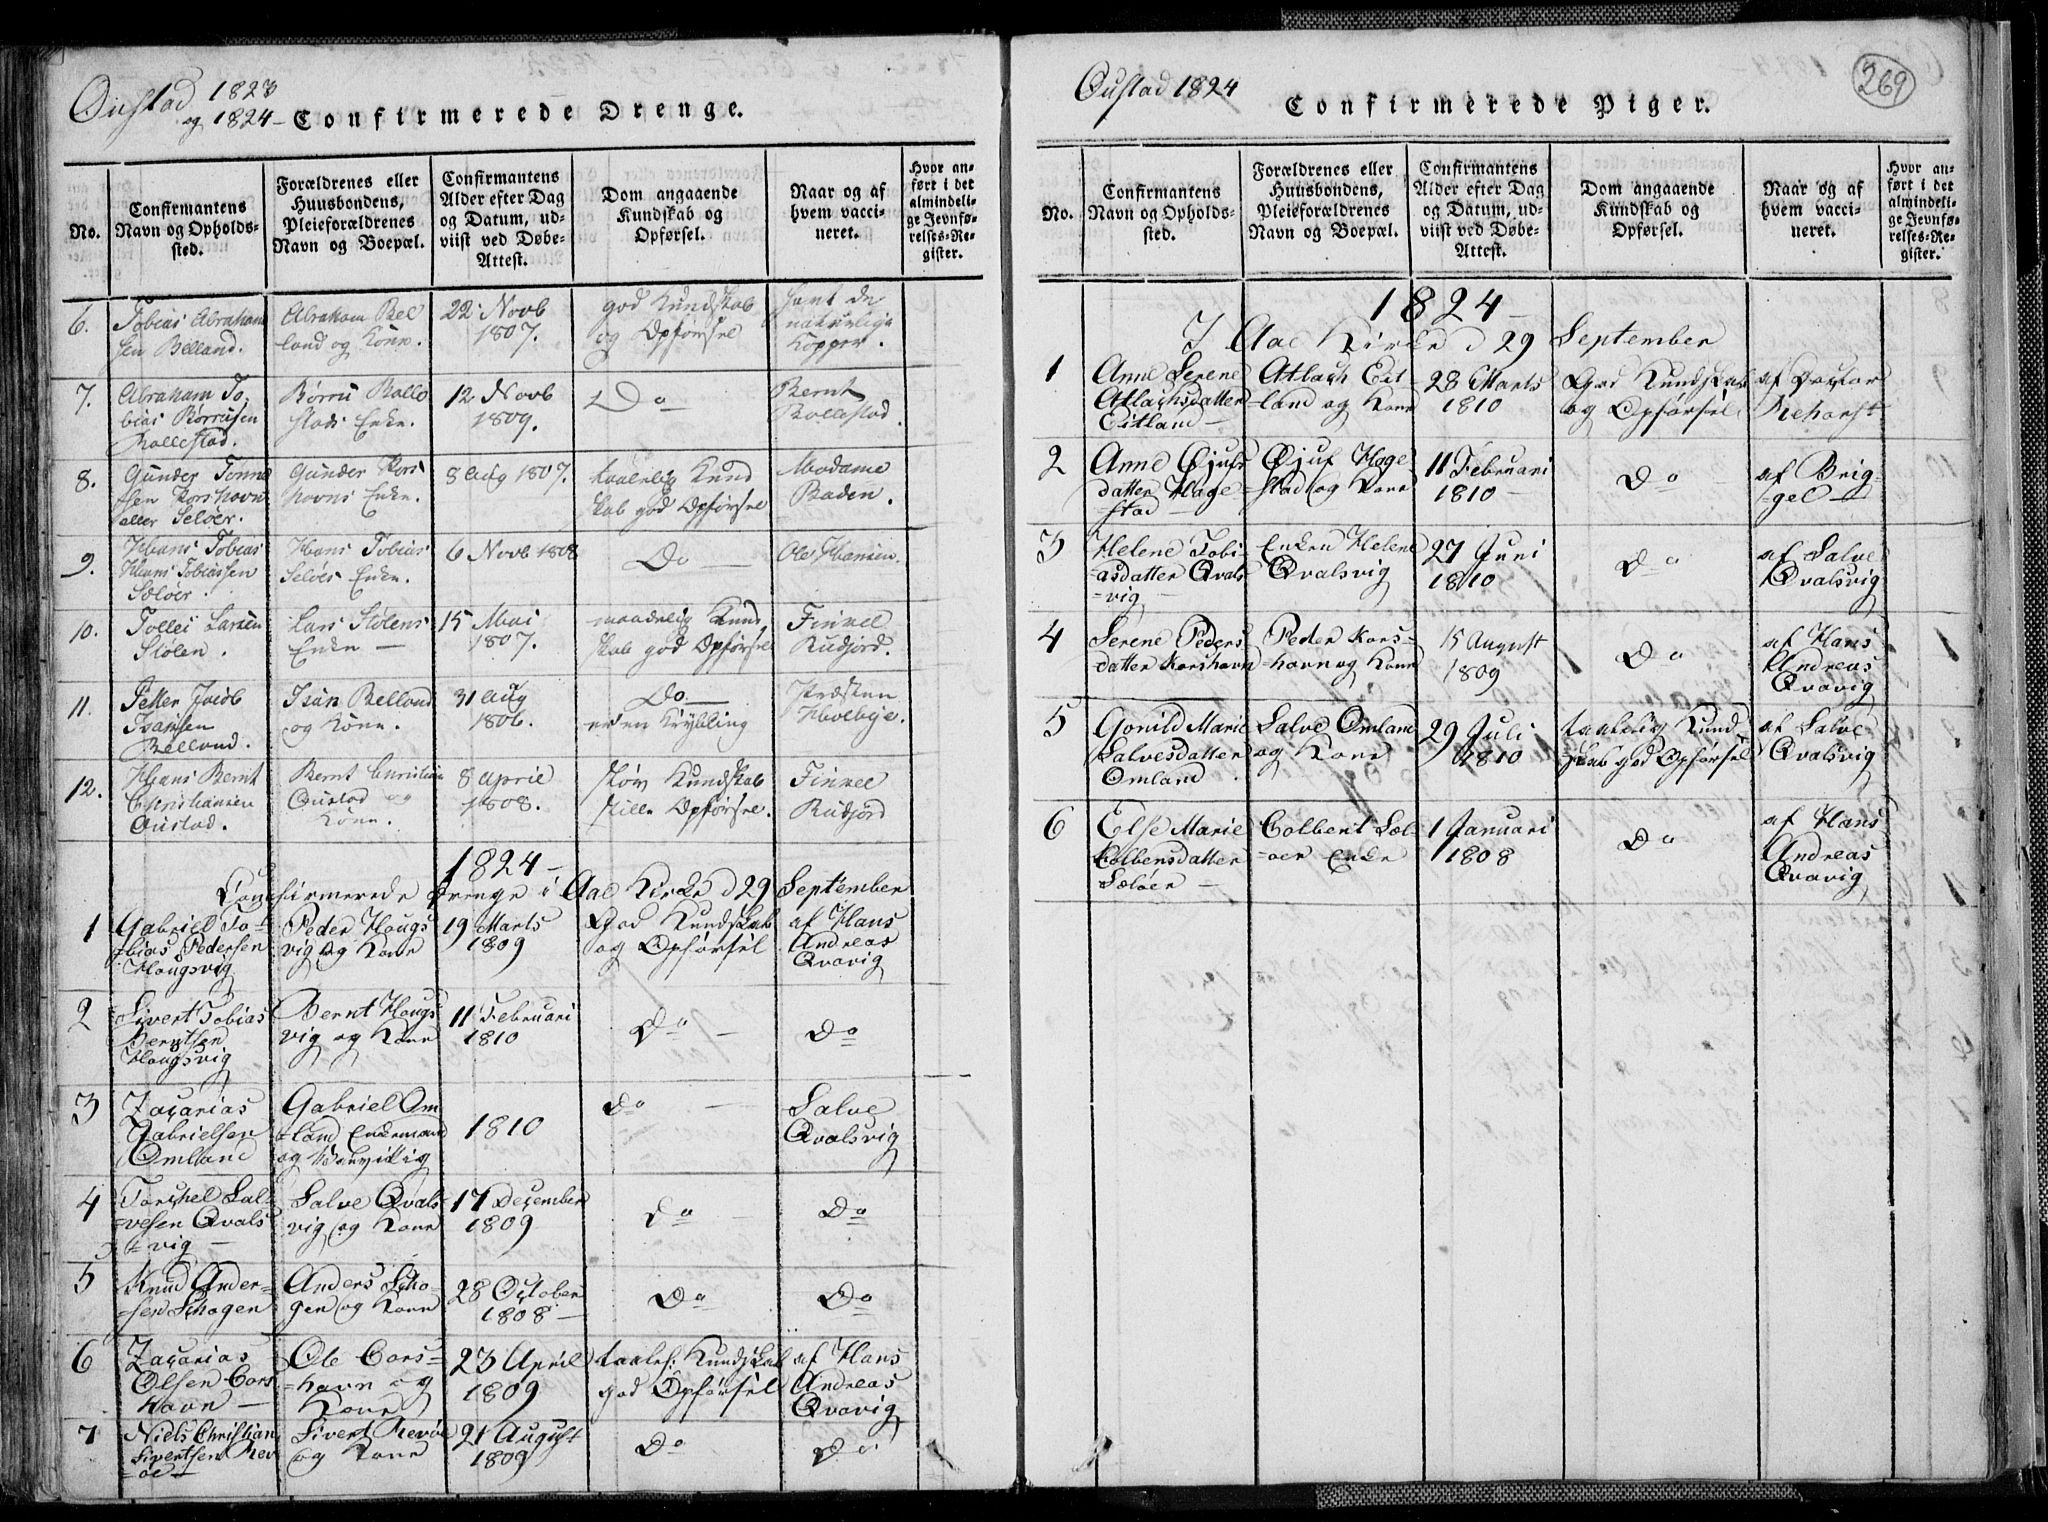 Oustad 1823
og 1824 –
Confirmerede Drenge.
No.
Confirmantens
Navn og Opholds-
sted.
Forældrenes eller
Huusbondens,
Pleieforældrenes
Navn og Boepæl.
Confirmantens
Alder efter Dag
og Datum, ud-
viist ved Døbe-
Attest.
Dom angaaende
Kundskab og
Opførsel.
Naar og af
hvem vacci-
neret.
Hvor an-
ført i det
almindeli-
ge Jevnfø-
relses-Re-
gister.
6.
Tobias Abraham
sen Belland.
Abraham Bel
land og Kone.
22 Novb
1807.
god Kundskab
og Opførsel
havt de
naturlige
Kopper.
7.
Abraham To,
bias Børrusen
Rollestad.
Børru Rolle
stads Enke.
12 Novb
1809.
Do
Bernt
Rollestad.
8.
Gunder Tønne
sen Korshavn
eller Seløer.
Gunder Kors
havns Enke.
8 Aug 1807.
taalelig Kund
skab god Opførsel
Madame
Baden.
9.
Hans Tobias
Hans Tobiassen
Seløer.
Hans Tobias
Seløes Enke.
6 Novb 1808
Do
Ole Hansen.
10.
Tollei Larsen
Stølen.
Lars Stølens
Enke –
15 Mai
1807.
maadelig Kund,
skab god Opførsel
Finkel
Rudjord.
11.
Petter Jacob
Isaksen
Belland.
Isak Belland
og Kone.
31 Aug
1806.
Do
er en Krybling
Præsten
Holbye.
12.
Hans Bernt
Christiansen
Oustad.
Bernt Christian
Oustad og
Kone.
8 April
1808.
Kundskab
stille Opførsel.
Finkel
Rudjord
1824 –
Confirmerede Drenge i Aae Kirke d 29 September
1
Gabriel To-
bias Pedersen
Hougsvig
Peder Hougs
vig og Kone
19 Marts
1809
God Kundskab
og Opførsel
af Hans
Andreas
Qvavig
2
Sivert Tobias
Berntsen
Hougsvig
Bernt Hougs
vig og Kone
11 Februari
1810
Do –
Do
3
Zacarias
Gabrielsen
Omland
Gabriel Om
land Enkemand
og
1810
Do –
Salve
Qvalsvig
4
Torkel Sal-
vesen Qvals
vig –
Salve Qvals-
vig og Kone
17 December
1809
Do
Do
5
Knud Ander-
sen Schogen
Anders Scho-
gen og Kone
28 October
1808 –
Do
Do
6
Zacarias
Olsen Cors
havn –
Ole Cors=
=havn og
Kone
23 April
1809
taalel: Kundskab
god Opførsel
af Hans
Andreas
Qvavig
7
Niels Christian
Sivertsen Rev
=øe –
Sivert Revøe
og Kone
21 August
1809
Do
Do
Oustad 1824
Confirmerede Piger.
269
No.
Confirmantens
Navn og Opholds-
sted.
Forældrenes eller
Huusbondens,
Pleieforældrenes
Navn og Boepæl.
Confirmantens
Alder efter Dag
og Datum, ud-
viist ved Døbe-
Attest.
Dom angaaende
Kundskab og
Opførsel.
Naar og af
hvem vacci-
neret.
Hvor an-
ført i det
almindeli-
ge Jevnfø-
relses-Re-
gister.
1824 –
I Aae Kirke d 29 September
1
Anne Serene
Atlachsdatter
Eitland –
Atlach Eit-
land og Kone
28 Marts
1810
God Kundskab
og Opførsel
af Doctor
2
Anne Øjufs
datter Hage
=stad
Øjuf Hage
=stad og Kone
11 Februari
1810 –
Do
af Brig-
=gel –
3
Helene Tobi-
=asdatter Qvals
=vig –
Enken Helene
Qvalsvig
27 Juni
1810
Do
af Salve
Qvalsvig
4
Serene Peders
datter Korshavn
Peder Kors=
=havn og Kone
15 August
1809
Do
af Hans
Andreas
Qvavig
5
Gonild Marie
Salvesdatter
Omland
Salve Omland
og Kone
29 Juli
1810
taalelig Kund
skab god Opførsel
af Salve
Qvalsvig
6
Else Marie
Colbensdatter
Sæløer –
Colbent Sæl
=øer Enke
1 Januari
1808
Do
af Hans
Andreas
Qvavig